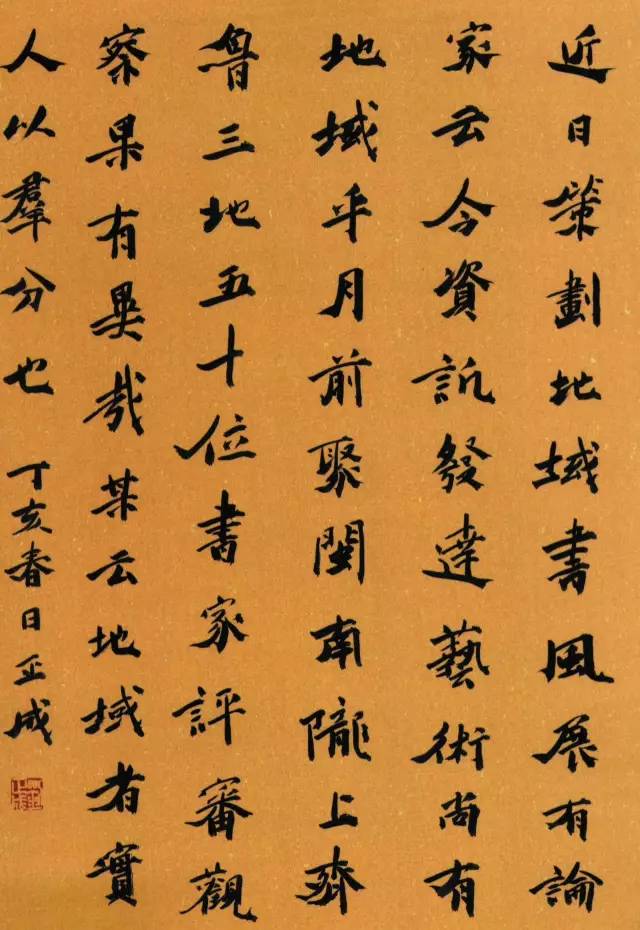 近日策劃地域書風展有論
家云今資訊發達藝術尚有
地域乎月前聚閩南隴上齊
魯三地五十位書家評審觀
察果有異哉某云地域者實
人以羣分也
丁亥春日正成